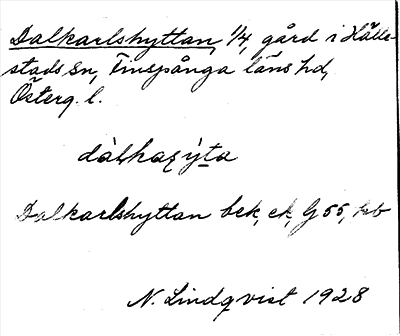 Dalkarlshyttan, 1/4, gård i Hälle-
stads sn, Finspånga läns hd,
Österg. l.
dàlkaʂýta
Dalkarlshyttan bek, ek, G 55, hb
N. Lindqvist 1928